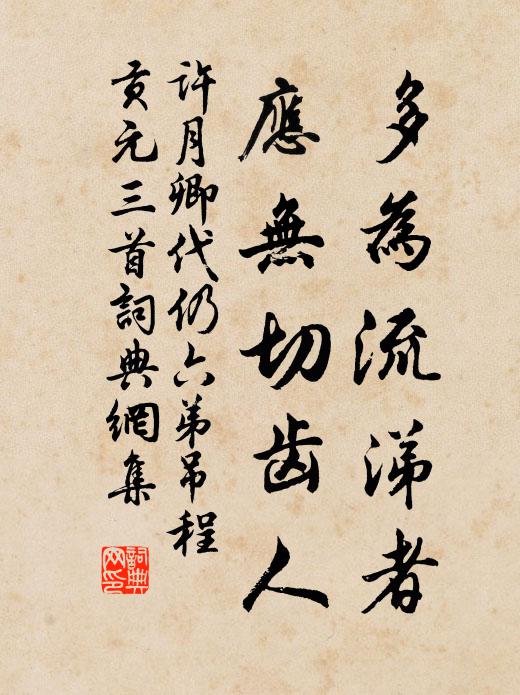 多為流涕者
應無切齒人
許月卿代仍六弟吊程
貢元三首詞典網集
詞典网印